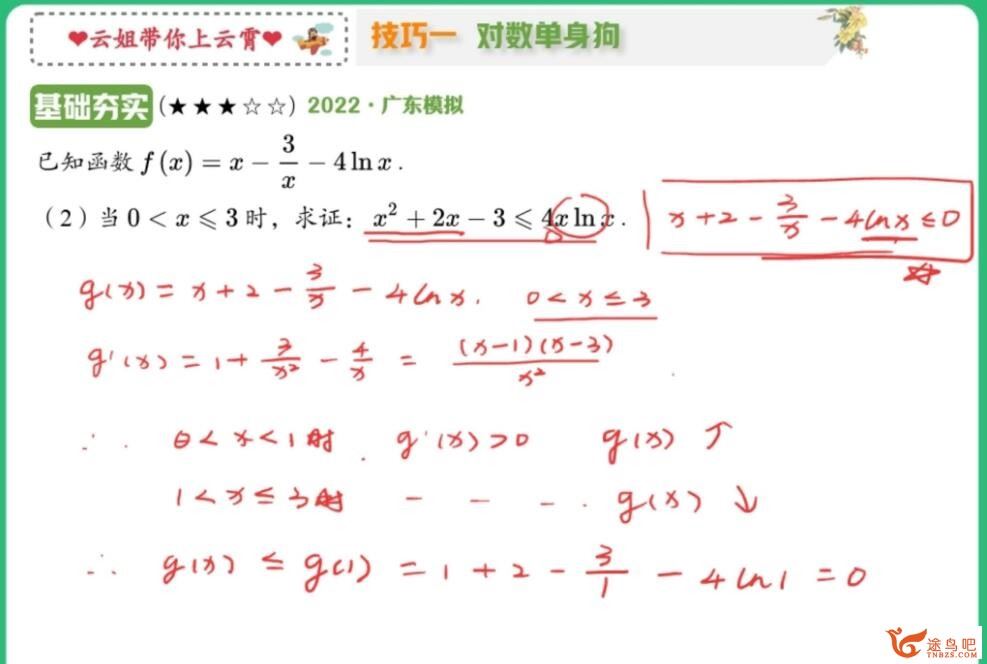 ❤云姐带你上云霄❤ 技巧一 对数单身狗
基础夯实 (★★★☆☆) 2022·广东模拟
已知函数 f(x) = x - 3/x - 4 ln x .
(2) 当 0 < x ⩽ 3 时，求证：x² + 2x - 3 ⩽ 4x ln x . x + 2 - 3/x - 4 ln x ≤ 0
g(x) = x + 2 - 3/x - 4 ln x. 0 < x ≤ 3
g'(x) = 1 + 3/x² - 4/x = (x-1)(x-3)/x²
∴ 0 < x < 1 时. g'(x) > 0 g(x) ↑
1 < x ≤ 3 时 - - - . g(x) ↓
∴ g(x) ≤ g(1) = 1 + 2 - 3/1 - 4 ln 1 = 0
途鸟吧
TNBZS.COM